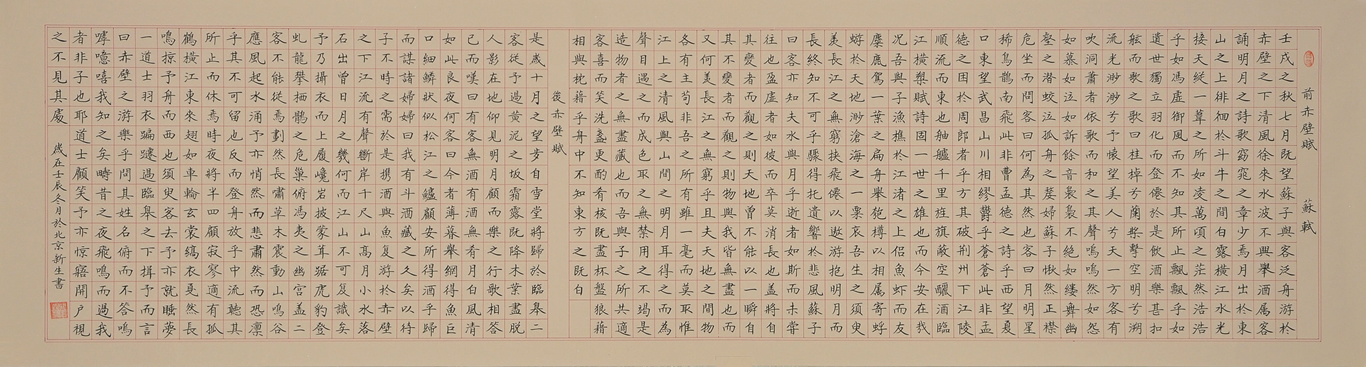 前赤壁賦 蘇軾
壬戌之秋七月既望蘇子與客泛舟游於
赤壁之下清風徐來水波不興舉酒属客
誦明月之詩歌窈窕之章少焉月出於東
山之上徘徊於斗牛之間白露橫江水光
接天縱一葦之所如凌萬頃之茫然浩浩
乎如馮虛御風而不知其所止飄飄乎如
遺世獨立羽化而登僊於是飲酒樂甚扣
舷而歌之歌曰桂棹兮蘭槳擊空明兮溯
流光渺渺兮予懷望美人兮天一方客有
吹洞蕭者依歌而和之其聲嗚嗚然如怨
如慕如泣如訴餘音裊裊不絕如縷舞幽
壑之潛蛟泣孤舟之嫠婦蘇子愀然正襟
危坐而問客曰何為其然也客曰月明星
稀烏鵲南飛此非曹孟德之詩乎西望夏
口東望武昌山川相繆鬱乎蒼蒼此非孟
德之困於周郎者乎方其破荆州下江陵
順流而東也舳艫千里旌旗蔽空釃酒臨
江橫槊賦詩固一世之雄也而今安在哉
况吾與子漁樵於江渚之上侣魚蝦而友
麋鹿駕一葉之扁舟舉匏樽以相属寄蜉
蝣於天地渺滄海之一粟哀吾生之須臾
羡長江之無窮挾飛仙以遨游抱明月而
長終知不可乎驟得托遺響於悲風蘇子
曰客亦知夫水與月乎逝者如斯而未嘗
往也盈虛者如彼而卒莫消長也盖將自
其變者而觀之則天地曾不能以一瞬自
其不變者而觀之則物與我皆無盡也而
又何羡長江之無窮乎且夫天地之間物
各有主苟非吾之所有雖一毫而莫取惟
江上之清風與山間之明月耳得之而為
聲目遇之而成色取之無禁用之不竭是
造物者之無盡藏也而吾與子之所共適
客喜而笑洗盞更酌肴核既盡杯盤狼籍
相與枕藉乎舟中不知東方之既白
後赤壁賦
是歲十月之望步自雪堂將歸於臨皋二
客從予過黃泥之坂霜露既降木葉盡脱
人影在地仰見明月顧而樂之行歌相答
已而嘆曰有客無酒有酒無肴月白風清
如此良夜何客曰今者薄暮舉網得魚巨
口細鱗狀似松江之鱸顧安所得酒乎歸
而謀諸婦婦曰我有斗酒藏之久矣以待
子不時之需於是攜酒與魚復游於赤壁
之下江流有聲斷岸千尺山高月小水落
石出曾日月之幾何而江山不可復識矣
予乃攝衣而上履巉岩披蒙茸踞虎豹登
虬龍攀栖鶻之危巢俯馮夷之幽宮盖二
客不能從焉劃然長嘯草木震動山鳴谷
應風起水涌予亦悄然而悲肅然而恐凛
乎其不可留也反而登舟放乎中流聽其
所止而休焉時夜將半四顧寂寥適有孤
鶴橫江東來翅如車輪玄裳縞衣戛然長
鳴掠予舟而西也須臾客去予亦就睡夢
一道士羽衣蹁躚過臨皋之下揖予而言
曰赤壁之游樂乎問其姓名俯而不答嗚
嘑噫嘻我知之矣疇昔之夜飛鳴而過我
者非子也耶道士顧笑予亦驚寤開户視
之不見其處 歲在壬辰冬月於北京新生書